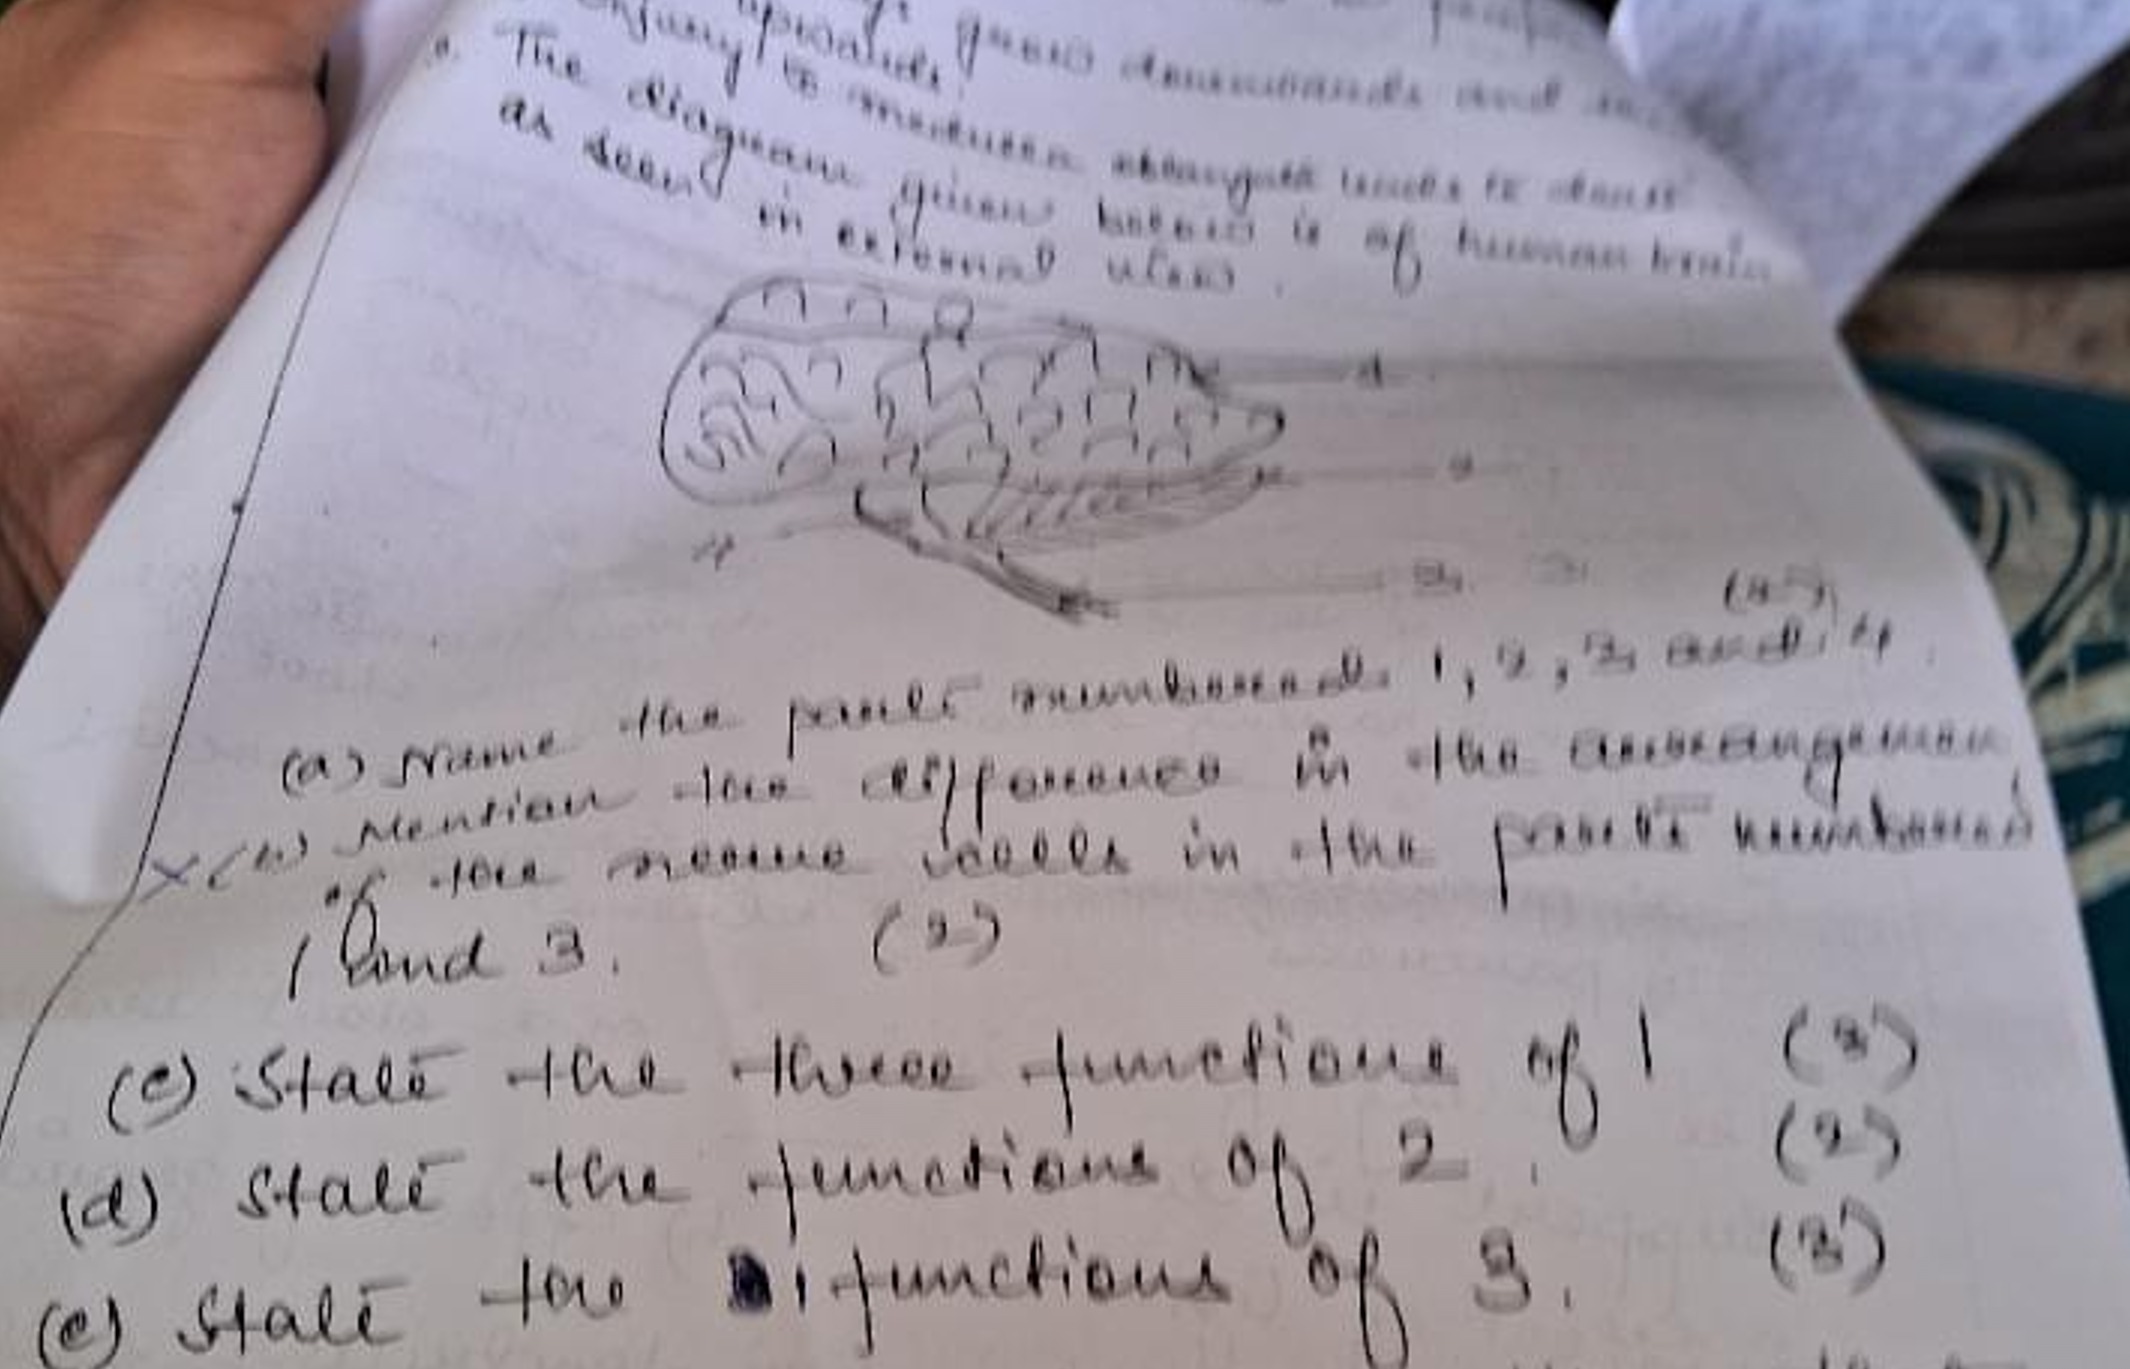 upwards. grow downwards and
Injury to medulla oblongata leads to death
The diagram given below is of human brain
as seen in external view.
1
2
4
3
(a) Name the parts numbered 1, 2, 3 and 4.
(b) Mention the difference in the arrangemen
of the nerve cells in the parts numbered
1 and 3. (2)
(c) State the three functions of 1 (3)
(d) State the functions of 2. (2)
(e) State the functions of 3. (3)